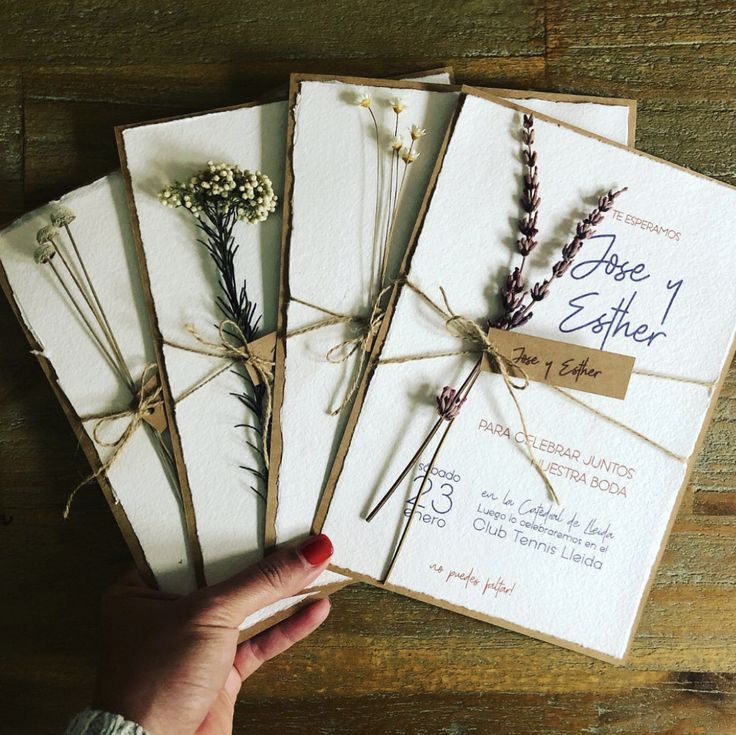 TE ESPERAMOS
Jose y
Esther
Jose y Esther
PARA CELEBRAR JUNTOS
NUESTRA BODA
sábado
23
enero
en la Catedral de Lleida
Luego lo celebraremos en el
Club Tennis Lleida
no puedes faltar!